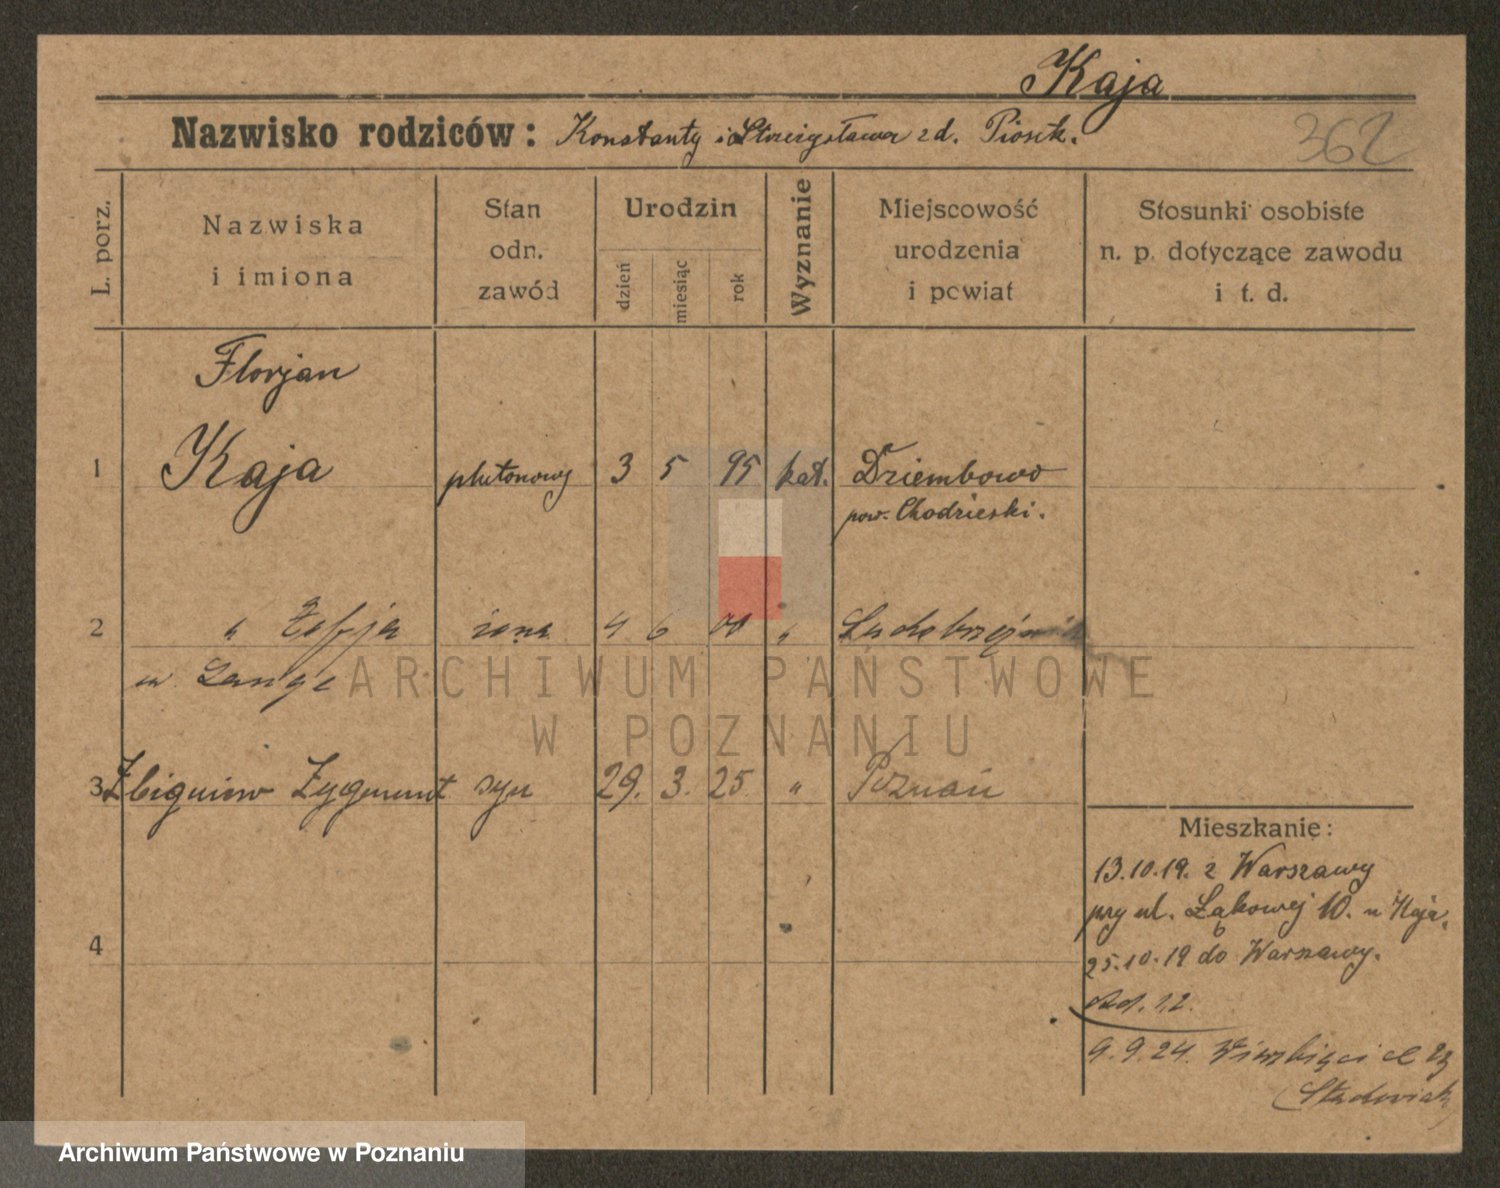 Kaja
Nazwisko rodziców: Konstanty i zd. Piosek.
362
L. porz.
Nazwiska
i imiona
Stan
odn.
zawód
Urodzin
dzień
miesiąc
rok
Wyznanie
Miejscowość
urodzenia
i powiat
Stosunki osobiste
n. p. dotyczące zawodu
i t. d.
Florjan
1 Kaja plutonowy 3 5 95 kat. Dziembowo
pow. Chodzieski.
2 " Zofja żona 4 6 00 "
Lange
ARCHIWUM PAŃSTWOWE
W POZNANIU
3 Zbigniew Zygmunt syn 29. 3. 25 " Poznań
Mieszkanie:
13.10.19. z Warszawy
przy ul. Łąkowej 10. u Kaja.
4
25.10.19 do Warszawy.
9.9.24.
Archiwum Państwowe w Poznaniu